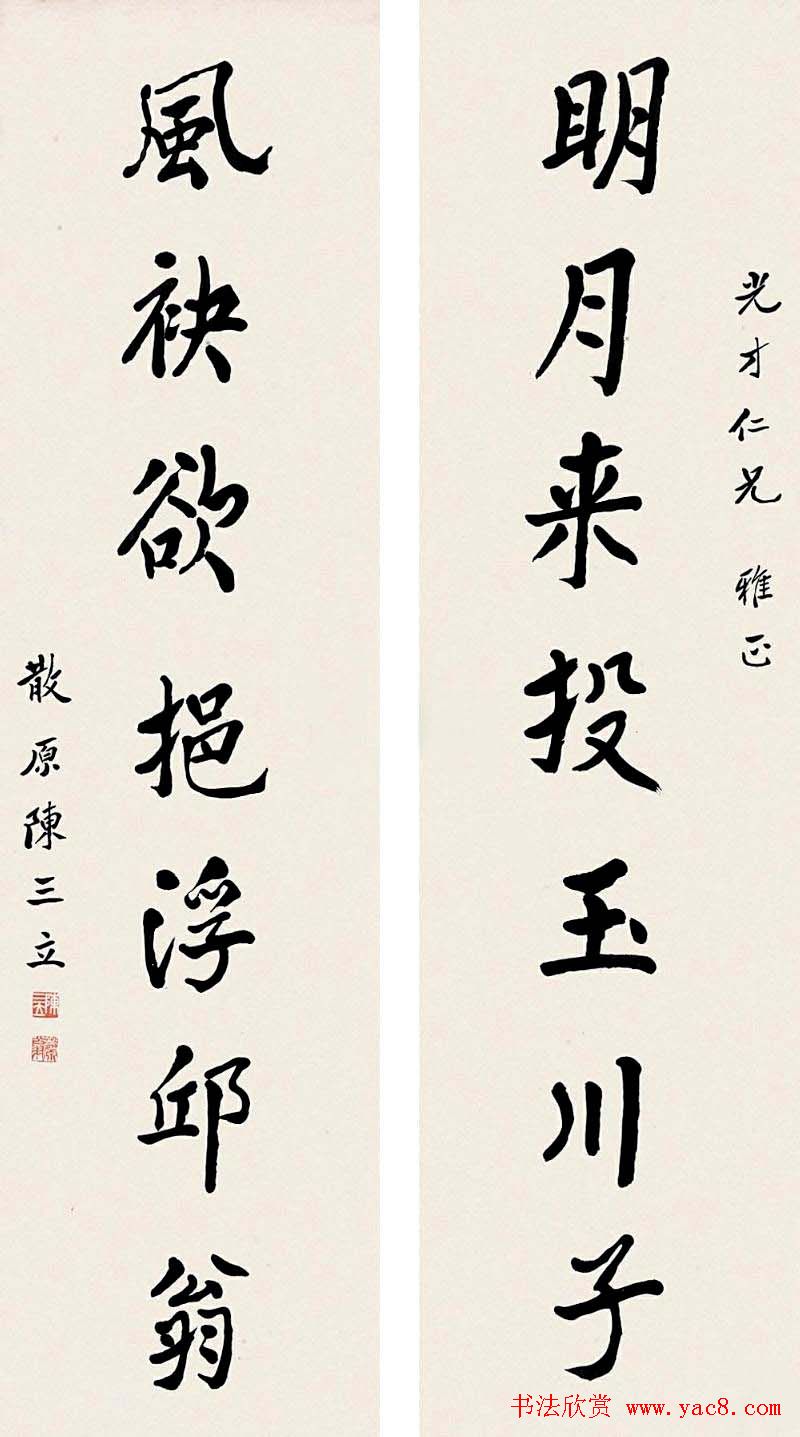 光才仁兄 雅正
明月来投玉川子
風袂欲挹浮邱翁
散原陳三立
书法欣赏 www.yac8.com